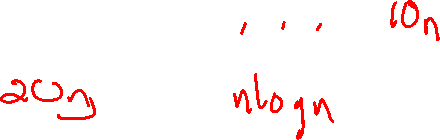 ... 10n
20n nlogn